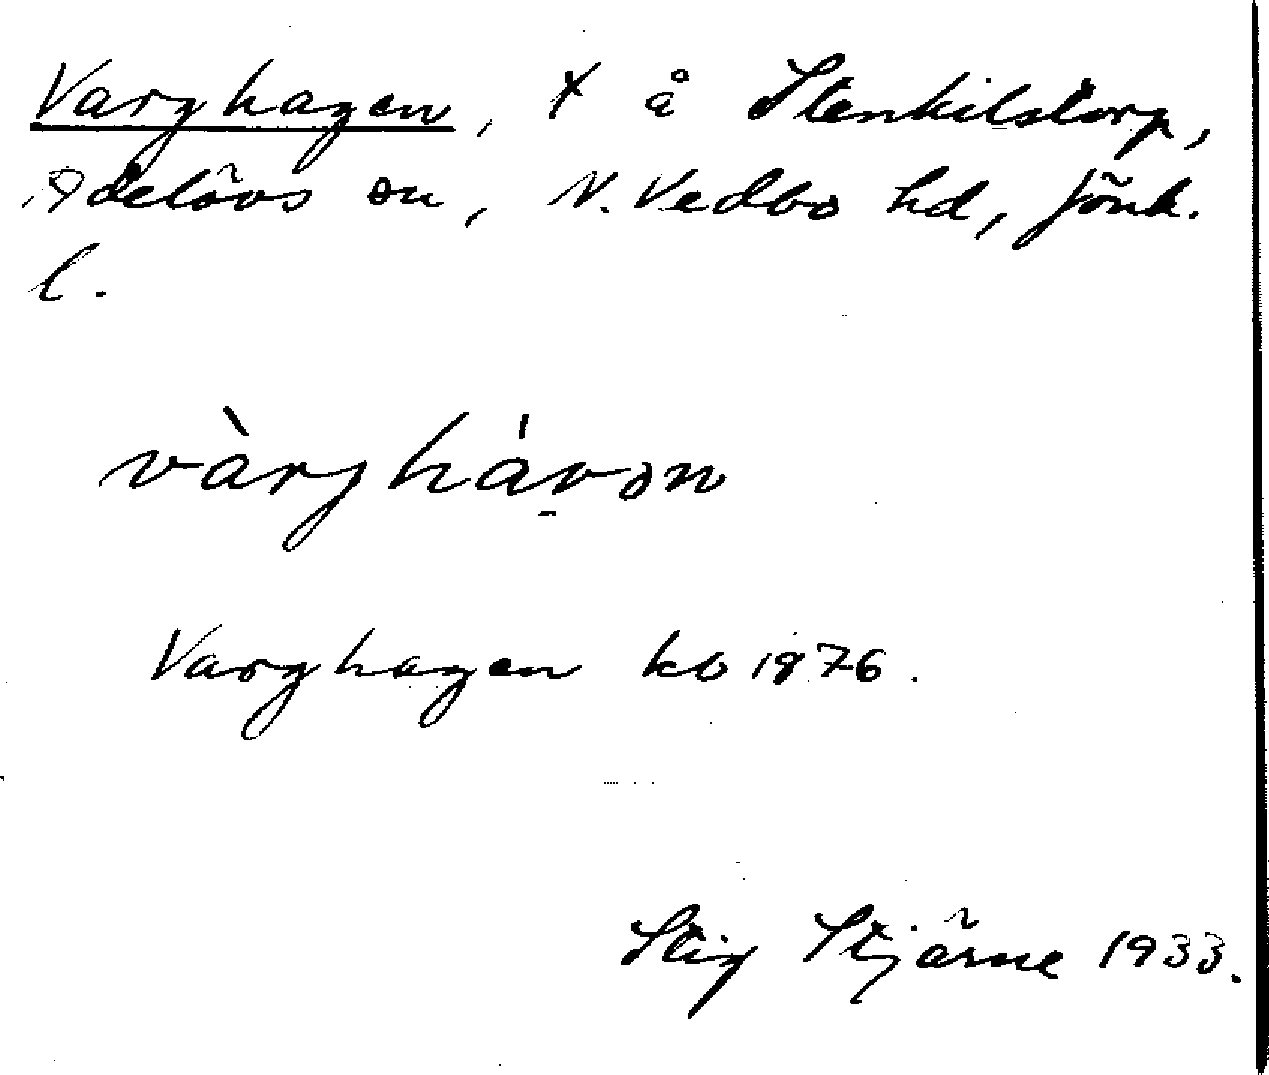 Varghagen, x å Stenkilstorp,
Adelövs sn, N. Vedbo hd, Jönk.
l.
vàrjhávən
Varghagen kb 1876.
Stig Stjärne 1933.